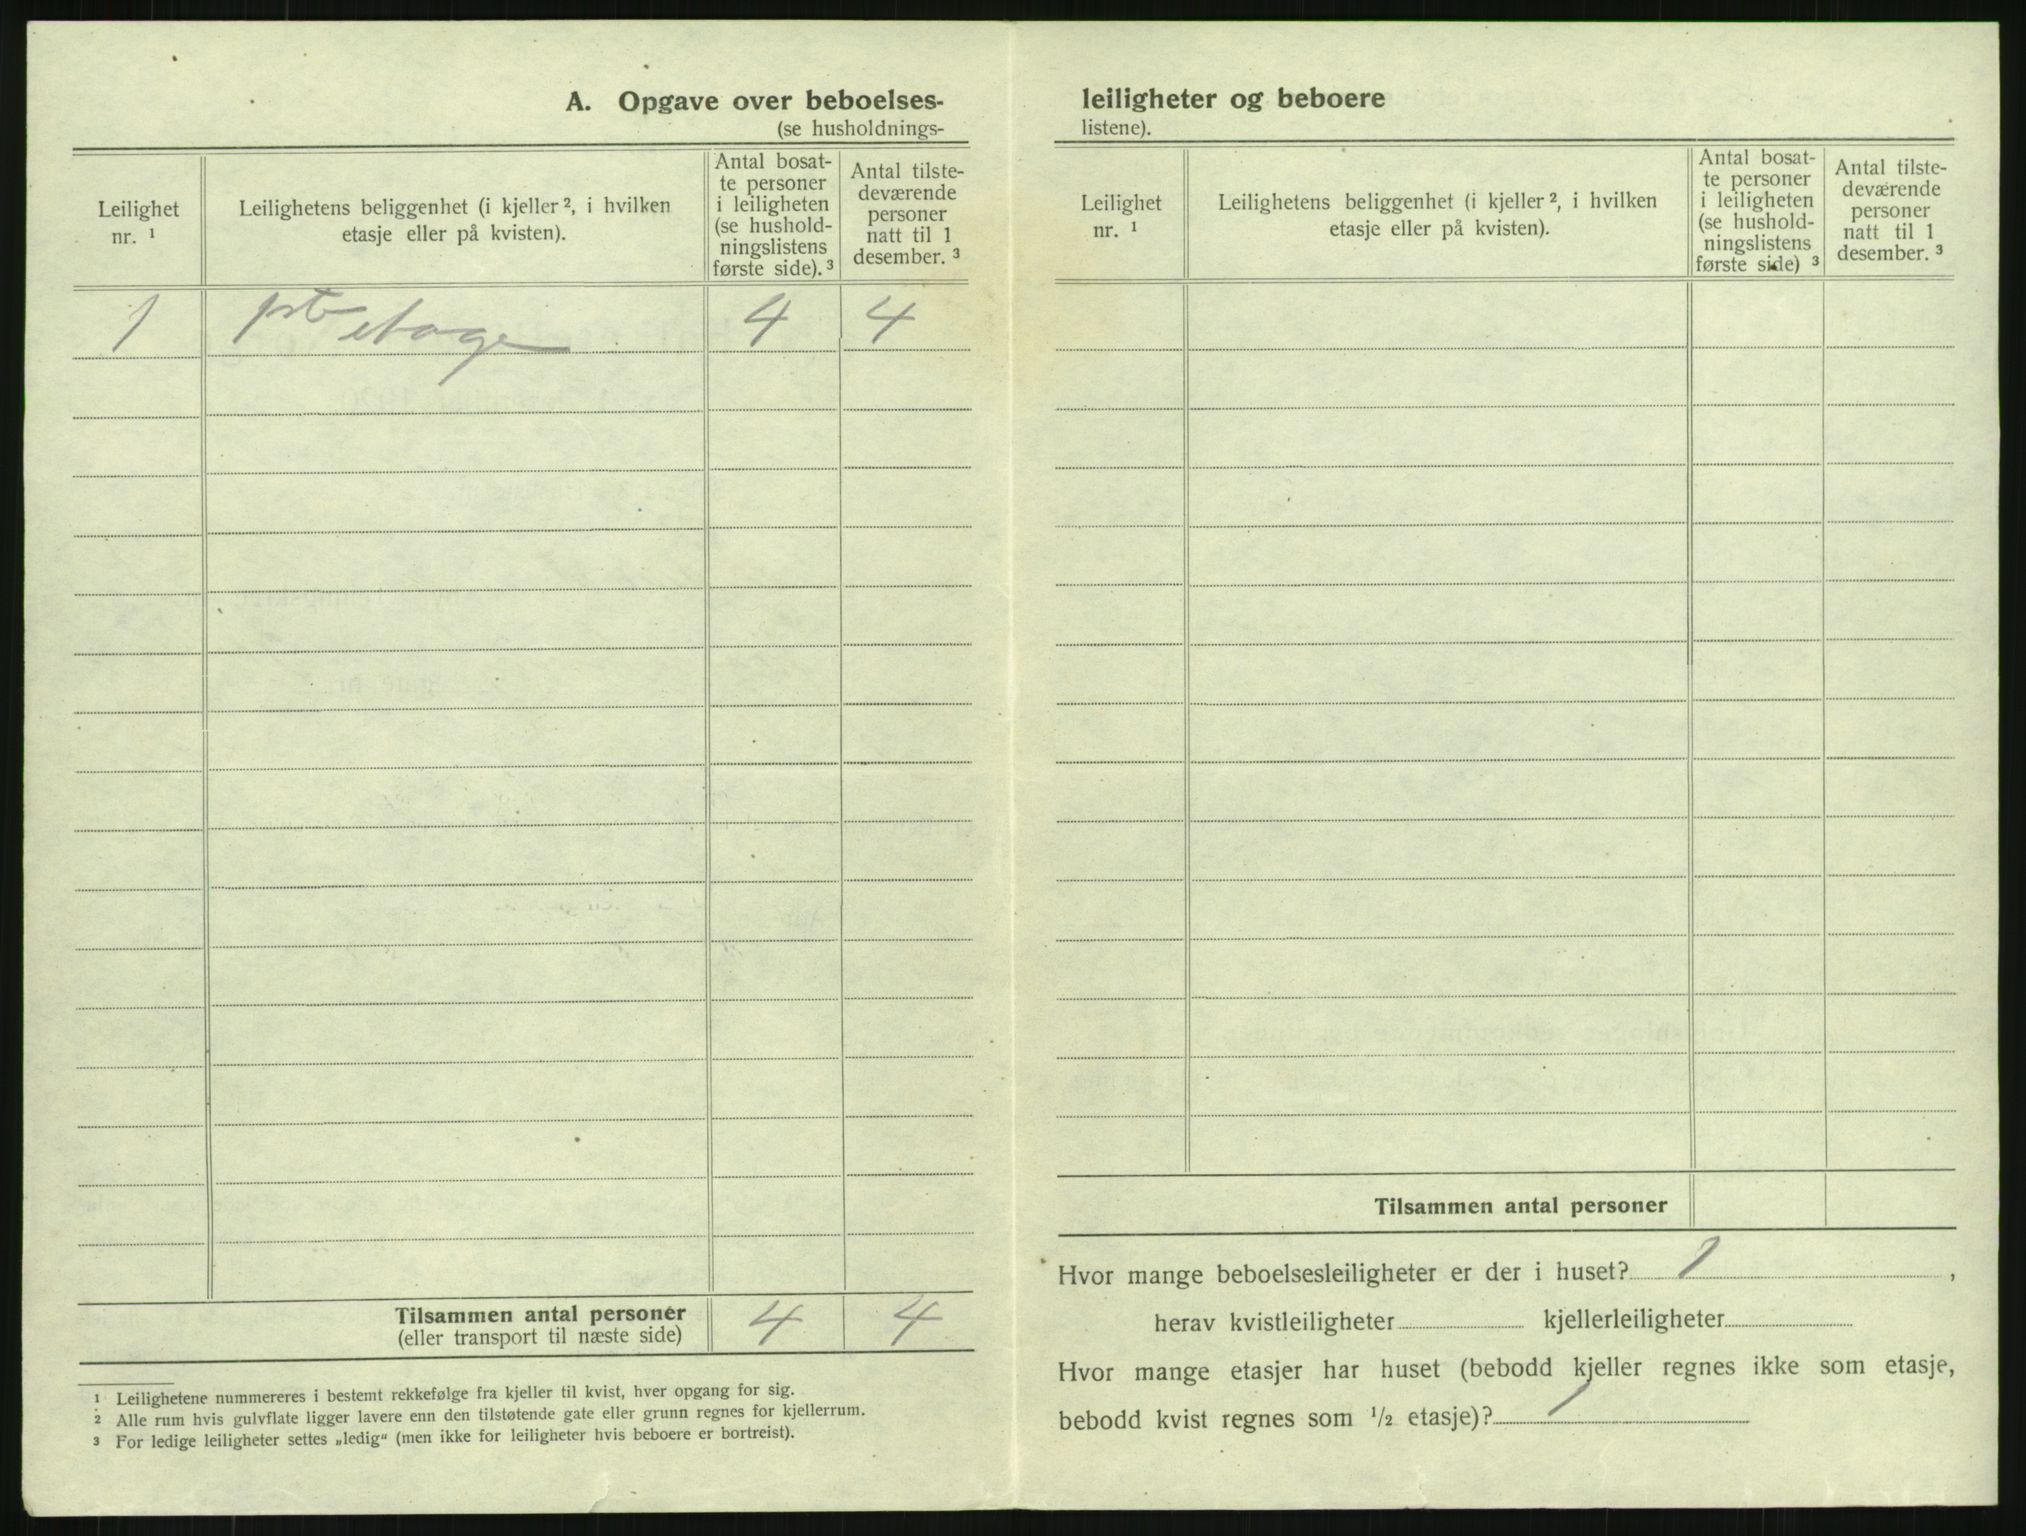 A. Opgave over beboelses-
(se husholdnings-
Leilighet
nr. ¹
Leilighetens beliggenhet (i kjeller ², i hvilken
etasje eller på kvisten).
Antal bosat-
te personer
i leiligheten
(se hushold-
ningslistens
første side). ³
Antal tilste-
deværende
personer
natt til 1
desember. ³
1 1ste etage 4 4
Tilsammen antal personer 4 4
(eller transport til næste side)
¹ Leilighetene nummereres i bestemt rekkefølge fra kjeller til kvist, hver opgang for sig.
² Alle rum hvis gulvflate ligger lavere enn den tilstøtende gate eller grunn regnes for kjellerrum.
³ For ledige leiligheter settes „ledig“ (men ikke for leiligheter hvis beboere er bortreist).
leiligheter og beboere
listene).
Leilighet
nr. ¹
Leilighetens beliggenhet (i kjeller ², i hvilken
etasje eller på kvisten).
Antal bosat-
te personer
i leiligheten
(se hushold-
ningslistens
første side) ³
Antal tilste-
deværende
personer
natt til 1
desember. ³
Tilsammen antal personer
Hvor mange beboelsesleiligheter er der i huset? 1 ,
herav kvistleiligheter kjellerleiligheter
Hvor mange etasjer har huset (bebodd kjeller regnes ikke som etasje,
bebodd kvist regnes som ½ etasje)? 1